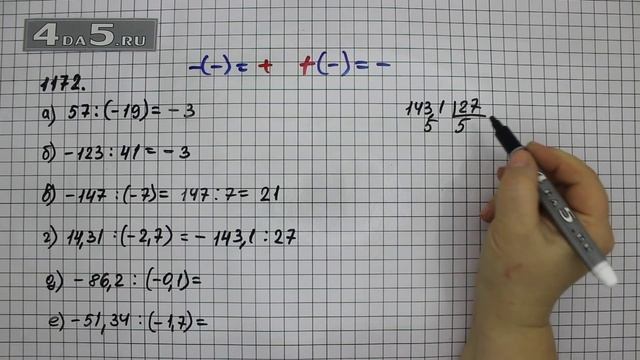 4DA5.RU
-(-)= + +(-)= -
1172.
а) 57:(-19)= -3
б) -123:41= -3
в) -147:(-7)= 147:7= 21
г) 14,31:(-2,7)= -143,1:27
д) -86,2:(-0,1)=
е) -51,34:(-1,7)=
143,1 27
5 5
DA 5